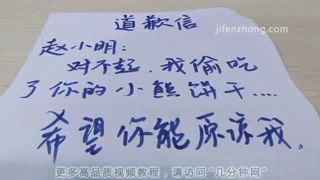 道歉信
jifenzhong.com
赵小明：
对不起，我偷吃
了你的小熊饼干....
希望你能原谅我。
更多高品质视频教程，请访问“几分钟网”